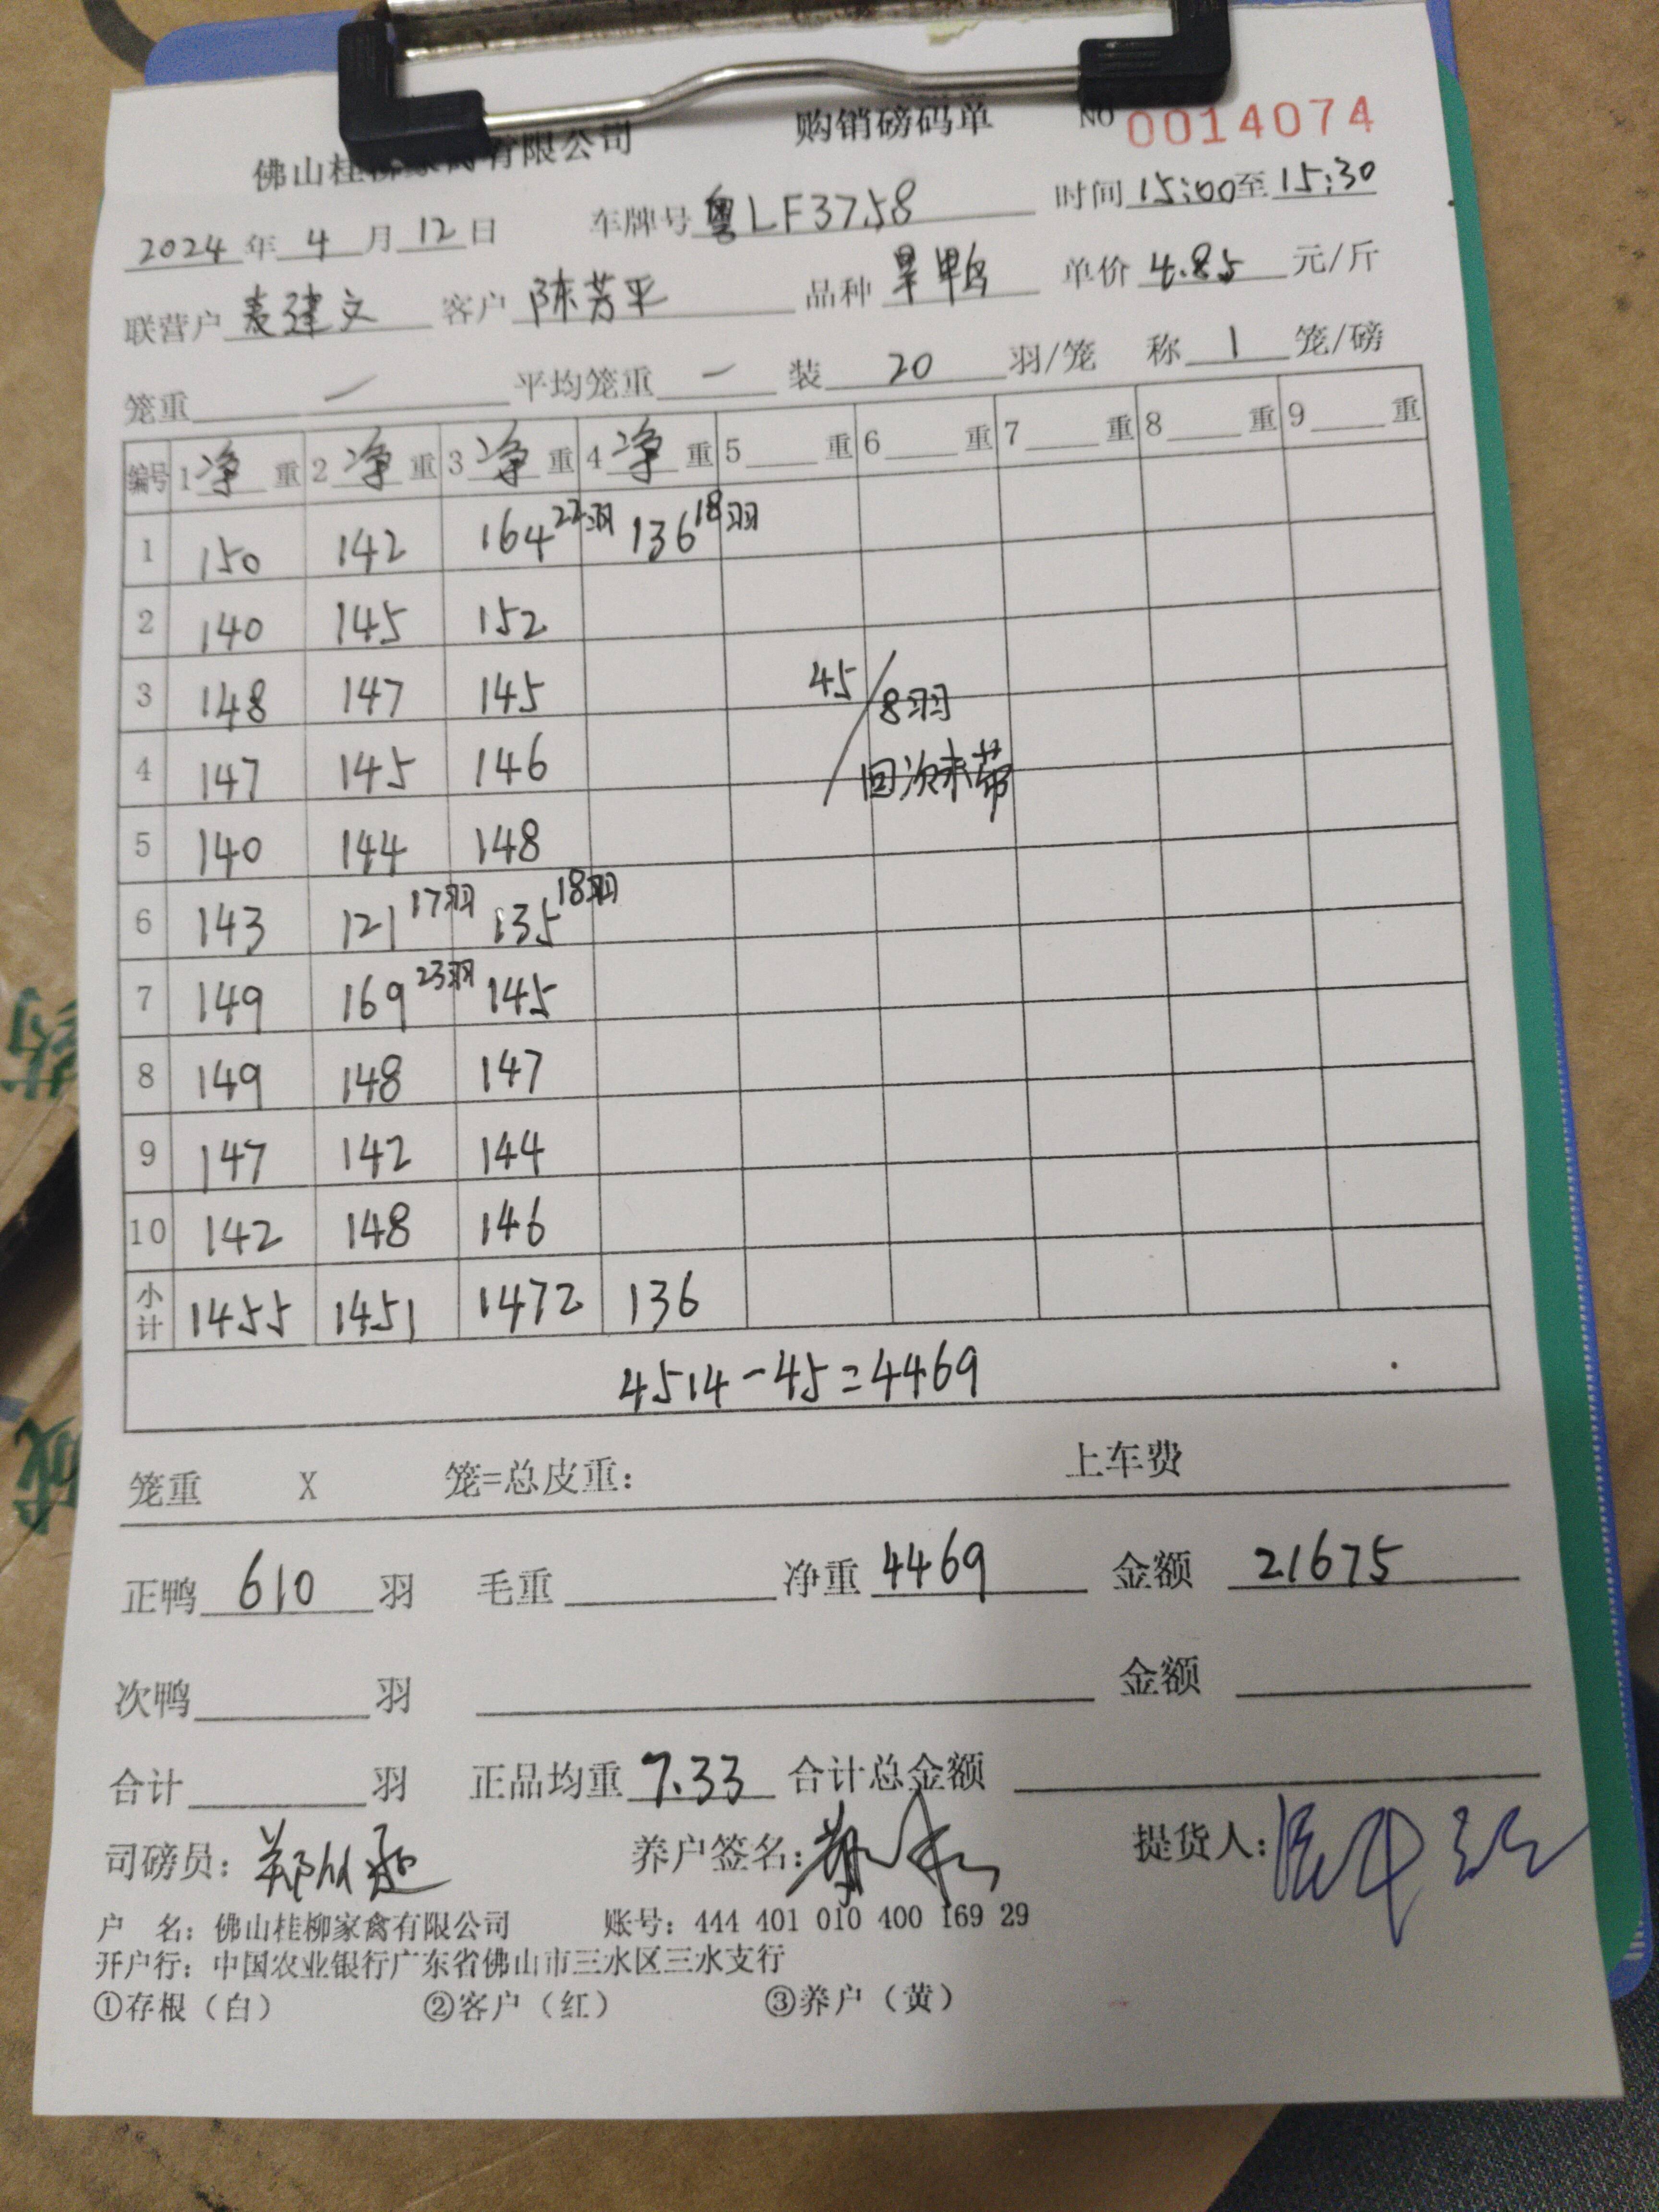 佛山桂柳家禽有限公司 购销磅码单 NO 0014074
2024年4月12日 车牌号粤LF3758 时间15:00至15:30
联营户麦建文 客户陈芳平 品种旱鸭 单价4.85元/斤
笼重 / 平均笼重 一 装20羽/笼 称1笼/磅
编号 1净重 2净重 3净重 4净重 5重 6重 7重 8重 9重
1 150 142 164 22羽 136 18羽
2 140 145 152
3 148 147 145 45/8羽
4 147 145 146 回次未带
5 140 144 148
6 143 121 17羽 135 18羽
7 149 169 23羽 145
8 149 148 147
9 147 142 144
10 142 148 146
小计 1455 1451 1472 136
4514-45=4469
笼重 X 笼=总皮重: 上车费
正鸭610羽 毛重 净重4469 金额21675
次鸭 羽 金额
合计 羽 正品均重7.33 合计总金额
司磅员: 养户签名: 提货人:
户 名:佛山桂柳家禽有限公司 账号:444 401 010 400 169 29
开户行:中国农业银行广东省佛山市三水区三水支行
①存根(白) ②客户(红) ③养户(黄)